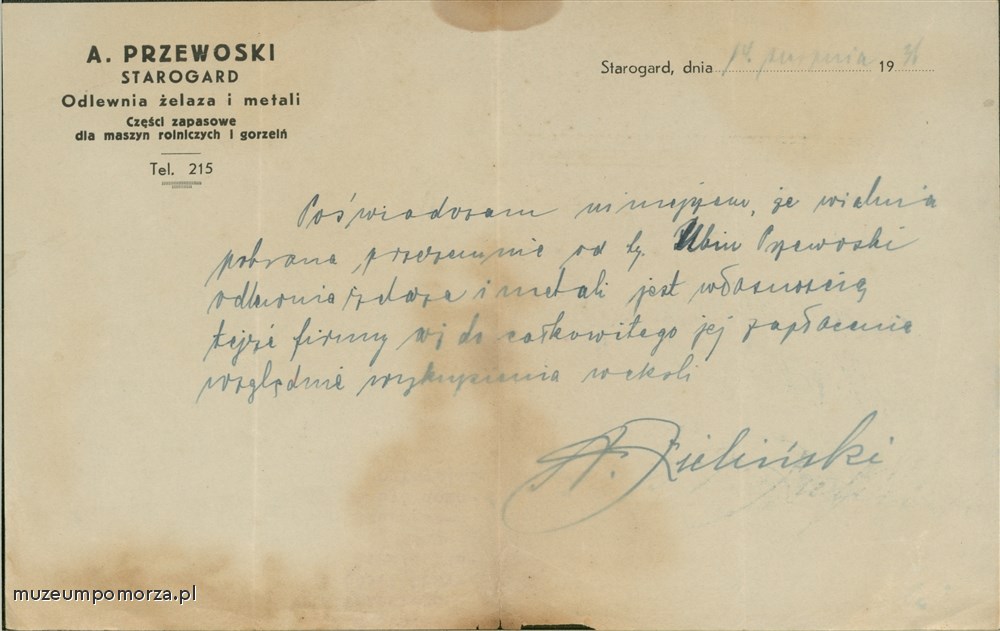 A. PRZEWOSKI
STAROGARD
Odlewnia żelaza i metali
Części zapasowe
dla maszyn rolniczych i gorzelń
Tel. 215
Starogard, dnia 14 sierpnia 1936
Poświadczam niniejszem, że
pobrana przezemnie od Przewoski
odlewnia żelaza i metali jest własnością
tejże firmy do całkowitego jej zapłacenia
względnie wykupienia weksli
A. Zieliński
muzeumpomorza.pl